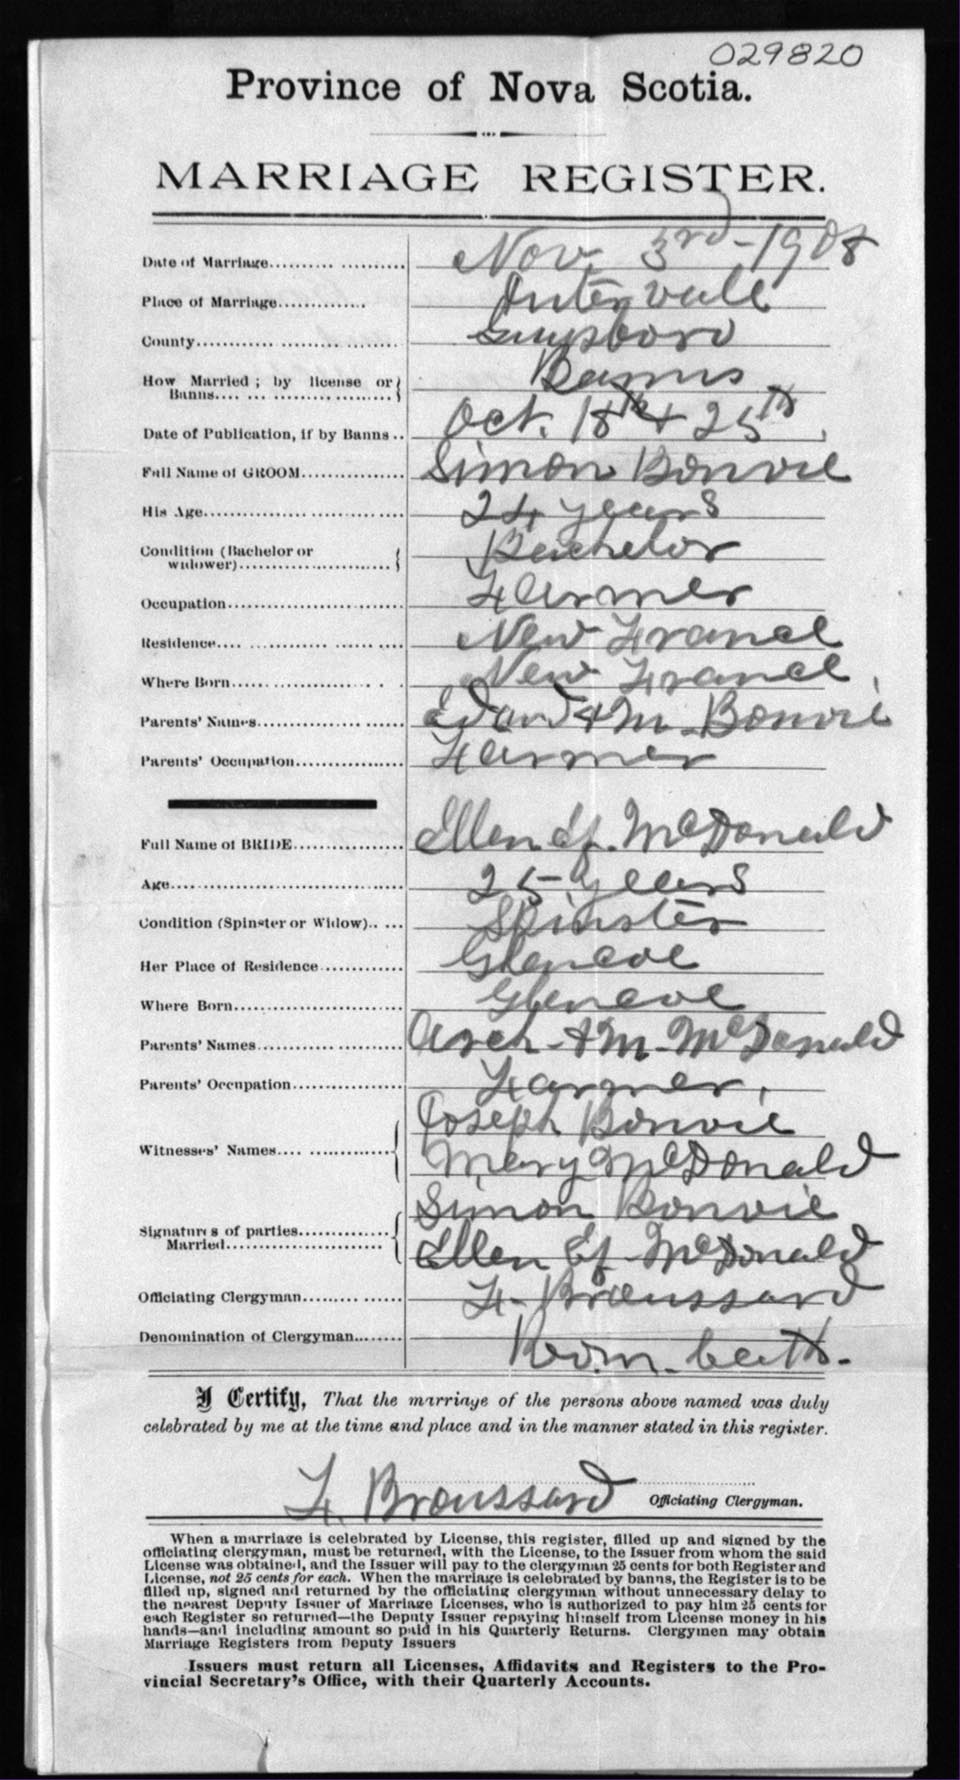 029820
Province of Nova Scotia.
MARRIAGE REGISTER.
Date of Marriage.................. Nov. 3rd - 1908
Place of Marriage............. Intervale
County........................... Guysboro
How Married; by license or Banns.... ... .................. Banns
Date of Publication, if by Banns.. Oct. 18th & 25th
Full Name of GROOM............... Simon Bonvie
His Age............................. 24 years
Condition (Bachelor or widower)...................... Bachelor
Occupation......................... Farmer
Residence.... ..................... New France
Where Born..................... New France
Parents' Names..................... Edward & M. Bonvie
Parents' Occupation................ Farmer
Full Name of BRIDE................ Ellen McDonald
Age................................... 25 years
Condition (Spinster or Widow).. ... Spinster
Her Place of Residence............ Glencoe
Where Born........................ Glencoe
Parents' Names..................... Arch - & M - McDonald
Parents' Occupation................ Farmer
Witnesses' Names.... ............. Joseph Bonvie
Mary McDonald
Signatures of parties............. Simon Bonvie
Married....................... Ellen McDonald
Officiating Clergyman.............. F. Broussard
Denomination of Clergyman....... Rom. Cath.
I Certify, That the marriage of the persons above named was duly
celebrated by me at the time and place and in the manner stated in this register.
F. Broussard Officiating Clergyman.
When a marriage is celebrated by License, this register, filled up and signed by the
officiating clergyman, must be returned, with the License, to the Issuer from whom the said
License was obtained, and the Issuer will pay to the clergyman 25 cents for both Register and
License, not 25 cents for each. When the marriage is celebrated by banns, the Register is to be
filled up, signed and returned by the officiating clergyman without unnecessary delay to
the nearest Deputy Issuer of Marriage Licenses, who is authorized to pay him 25 cents for
each Register so returned—the Deputy Issuer repaying himself from License money in his
hands—and including amount so paid in his Quarterly Returns. Clergymen may obtain
Marriage Registers from Deputy Issuers
Issuers must return all Licenses, Affidavits and Registers to the Pro-
vincial Secretary's Office, with their Quarterly Accounts.